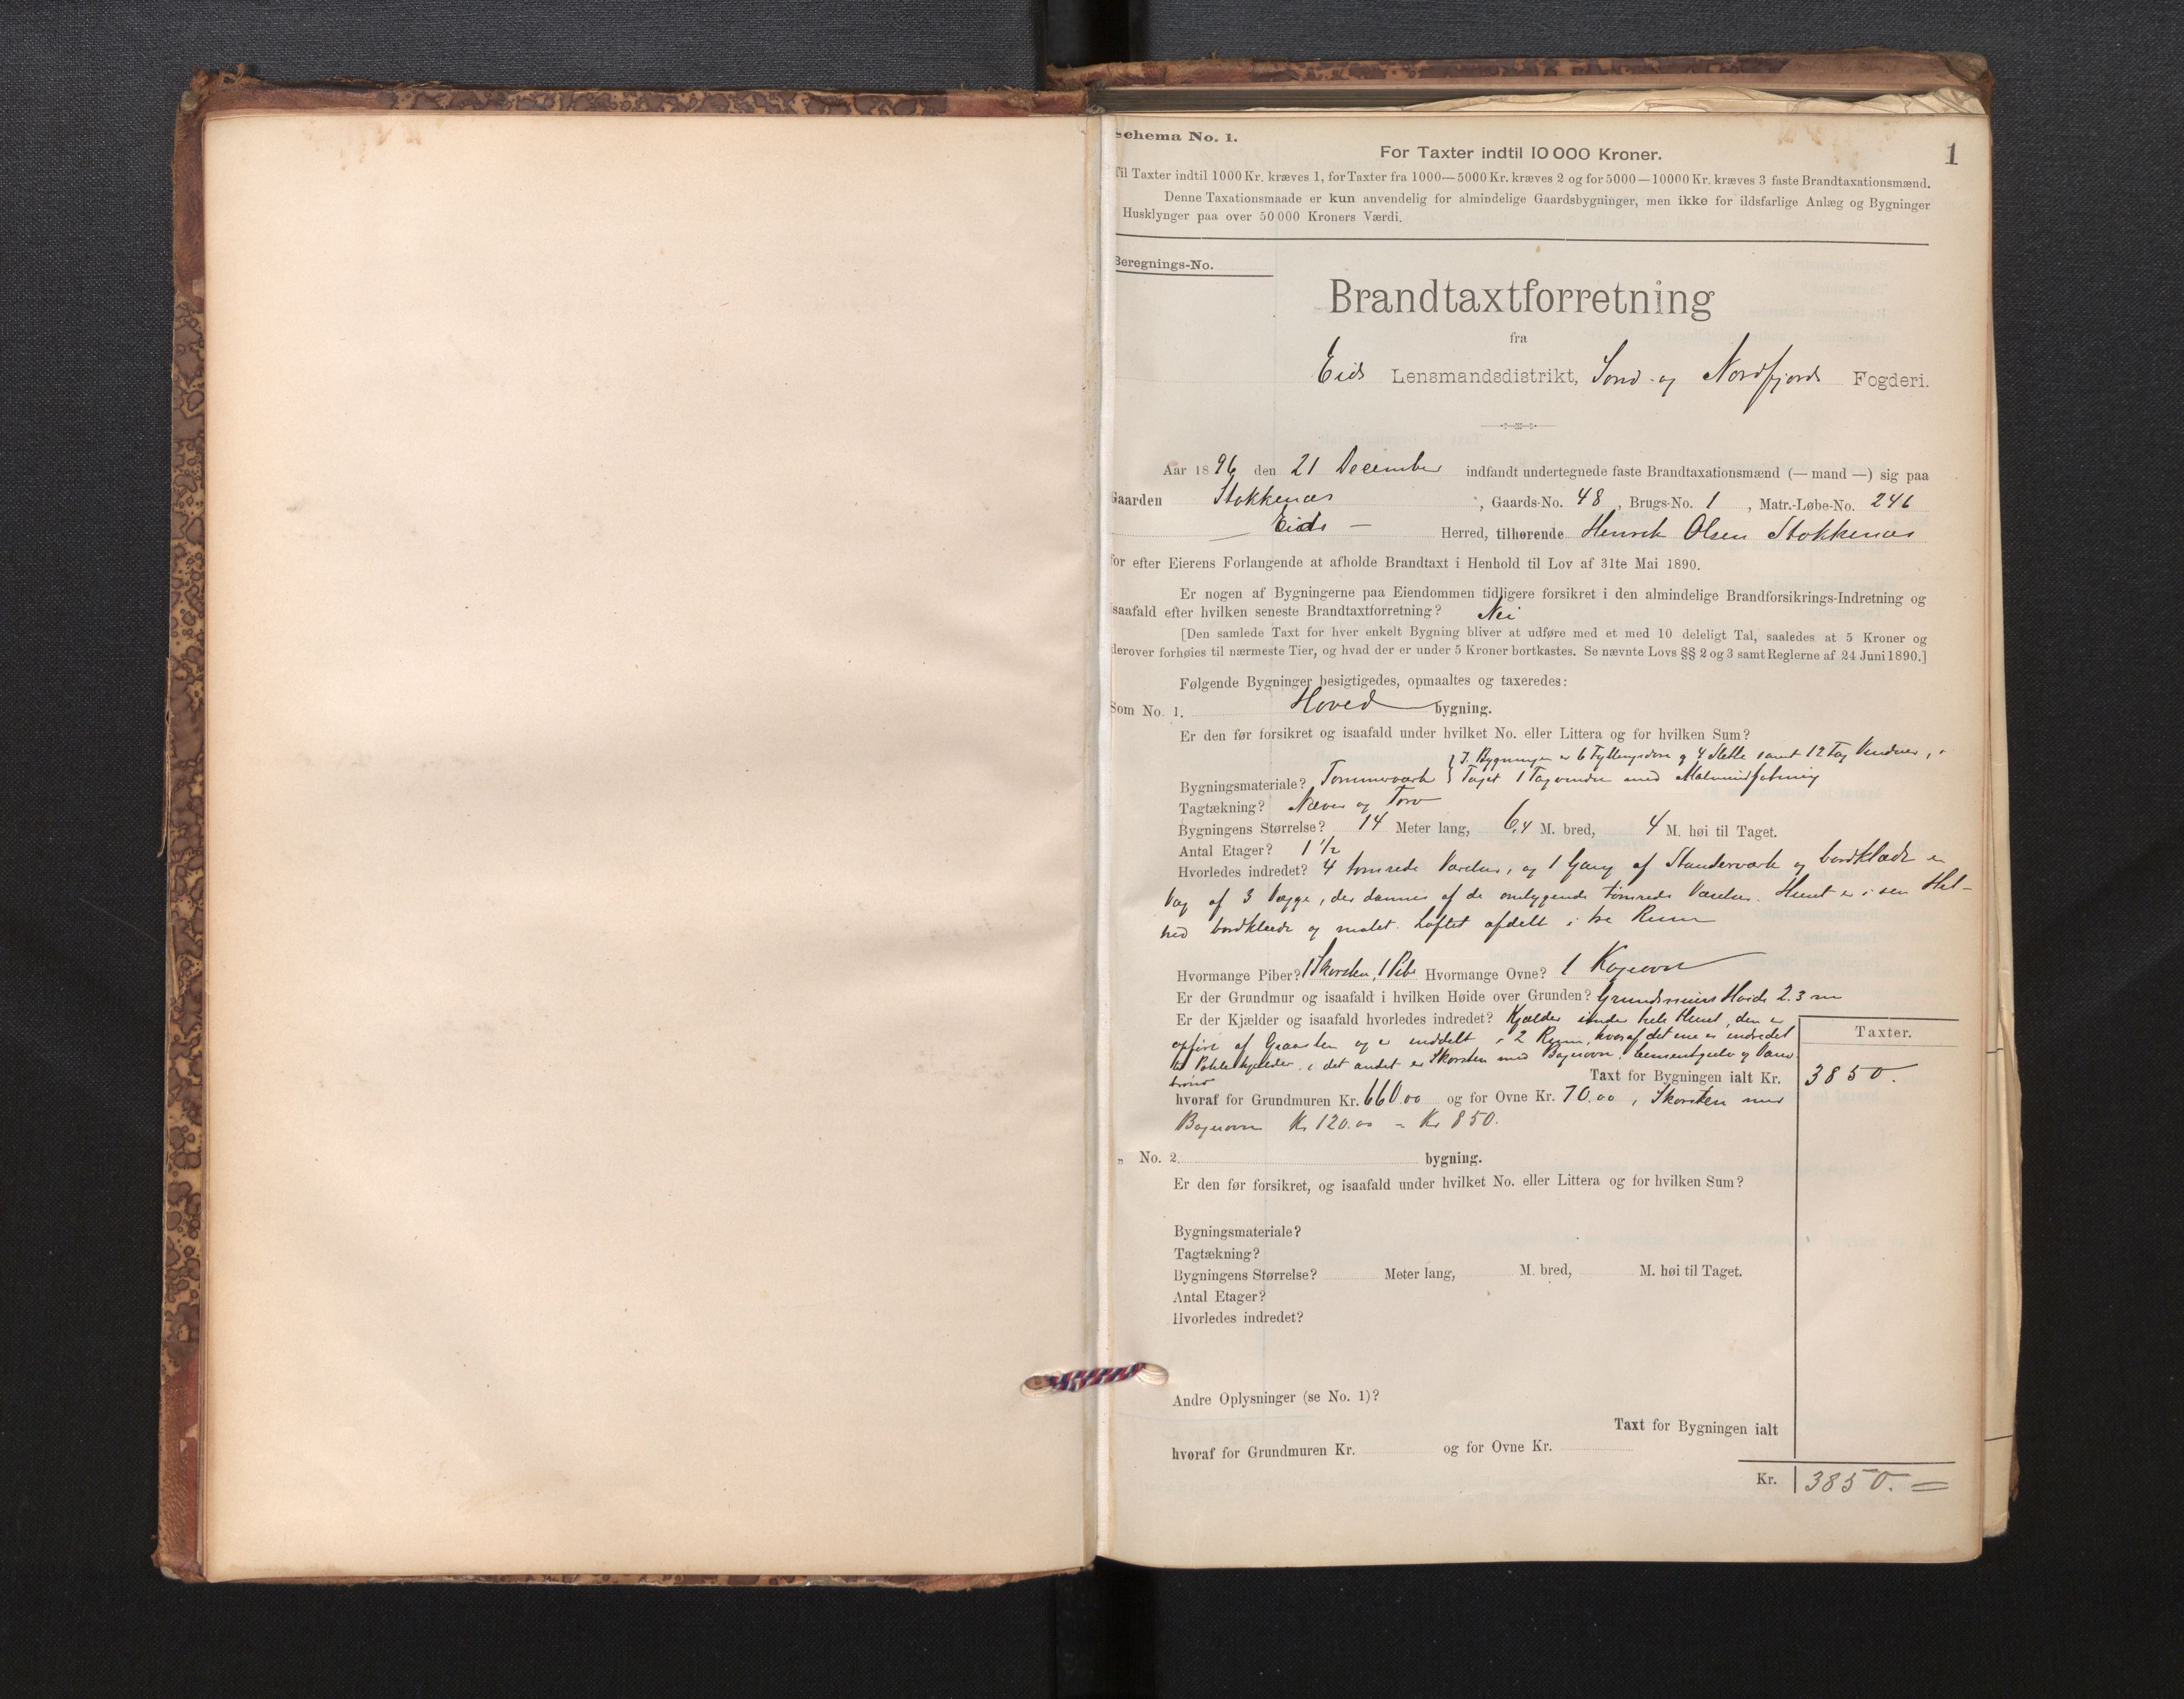 Schema No. 1.
1
For Taxter indtil 10 000 Kroner.
Til Taxter indtil 1000 Kr. kræves 1, for Taxter fra 1000—5000 Kr. kræves 2 og for 5000—10000 Kr. kræves 3 faste Brandtaxationsmænd.
Denne Taxationsmaade er kun anvendelig for almindelige Gaardsbygninger, men ikke for ildsfarlige Anlæg og Bygninger
Husklynger paa over 50 000 Kroners Værdi.
Beregnings-No.
Brandtaxtforretning
fra
Eids Lensmandsdistrikt, Sønd- og Nordfjords Fogderi.
Aar 1896 den 21 December indfandt undertegnede faste Brandtaxationsmænd (— mand —) sig paa
Gaarden Stokkenæs, Gaards-No. 48, Brugs-No. 1, Matr.-Løbe-No. 246
Eids — Herred, tilhørende Henrik Olsen Stokkenæs
for efter Eierens Forlangende at afholde Brandtaxt i Henhold til Lov af 31te Mai 1890.
Er nogen af Bygningerne paa Eiendommen tidligere forsikret i den almindelige Brandforsikrings-Indretning og
isaafald efter hvilken seneste Brandtaxtforretning? Nei
[Den samlede Taxt for hver enkelt Bygning bliver at udføre med et med 10 deleligt Tal, saaledes at 5 Kroner og
derover forhøies til nærmeste Tier, og hvad der er under 5 Kroner bortkastes. Se nævnte Lovs §§ 2 og 3 samt Reglerne af 24 Juni 1890.]
Følgende Bygninger besigtigedes, opmaaltes og taxeredes:
Som No. 1. Hovedbygning.
Er den før forsikret og isaafald under hvilket No. eller Littera og for hvilken Sum?
I Bygningen er 6 Fyllingsdøre og 4 Slette samt 12 Fag Vinduer, i
Bygningsmateriale? Tømmerværk Taget 1 Tagvindu med
Tagtækning? Næver og Torv
Bygningens Størrelse? 14 Meter lang, 6,4 M. bred, 4 M. høi til Taget.
Antal Etager? 1 1/2
Hvorledes indredet? 4 tømrede Værelser, og 1 Gang af Standerværk og bordklædt en
Væg af 3 Vægge, der dannes af de omliggende tømrede Værelser. Huset er i sen Hel-
hed bordklædt og malet. Loftet afdelt i tre Rum
Hvormange Piber? 1 Skorsten, 1 Pibe Hvormange Ovne? 1 Kogeovn
Er der Grundmur og isaafald i hvilken Høide over Grunden? Grundmurens Høide 2.3 m
Er der Kjælder og isaafald hvorledes indredet? Kjælder under hele Huset, den er
opført af Graasten og er inddelt i 2 Rum, hvoraf det ene er indredet
til Potetekjelder, i det andet er Skorsten med Bagerovn, Cementgulv og Vand-
brønd
Taxter.
Taxt for Bygningen ialt Kr. 3850.
hvoraf for Grundmuren Kr. 660.00 og for Ovne Kr. 70.00, Skorsten med
Bagerovn Kr 120.00 = Kr 850.
„ No. 2. bygning.
Er den før forsikret, og isaafald under hvilket No. eller Littera og for hvilken Sum?
Bygningsmateriale?
Tagtækning?
Bygningens Størrelse? Meter lang, M. bred, M. høi til Taget.
Antal Etager?
Hvorledes indredet?
Andre Oplysninger (se No. 1)?
Taxt for Bygningen ialt
hvoraf for Grundmuren Kr. og for Ovne Kr.
Kr. 3850. =